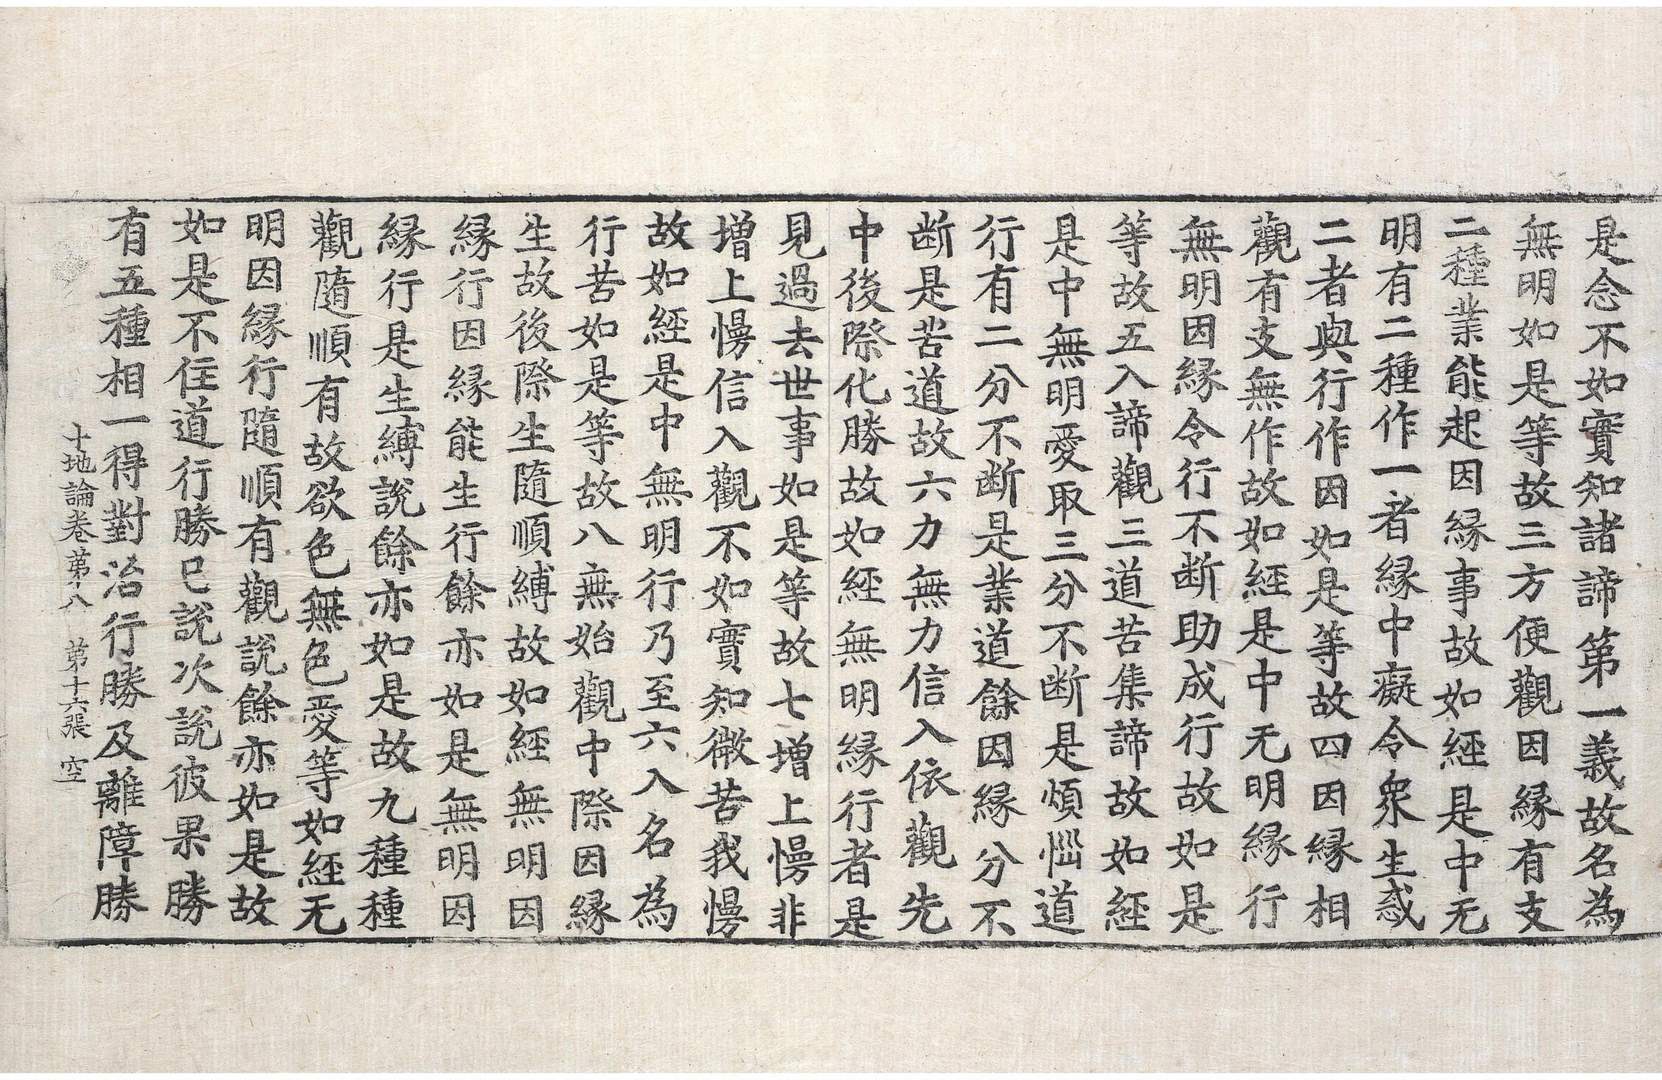 是念不如實知諸諦第一義故名為
無明如是等故三方便觀因緣有支
二種業能起因緣事故如經是中无
明有二種作一者緣中癡令衆生惑
二者與行作因如是等故四因緣相
觀有支無作故如經是中无明緣行
無明因緣令行不断助成行故如是
等故五入諦觀三道苦集諦故如經
是中無明愛取三分不断是煩惱道
行有二分不断是業道餘因緣分不
断是苦道故六力無力信入依觀先
中後際化勝故如經無明緣行者是
見過去世事如是等故七增上慢非
增上慢信入觀不如實知微苦我慢
故如經是中無明行乃至六入名為
行苦如是等故八無始觀中際因緣
生故後際生隨順縛故如經無明因
緣行因緣能生行餘亦如是無明因
緣行是生縛說餘亦如是故九種種
觀隨順有故欲色無色愛等如經无
明因緣行隨順有觀說餘亦如是故
如是不住道行勝已說次說彼果勝
有五種相一得對治行勝及離障勝
十地論卷第八 第十六張 空